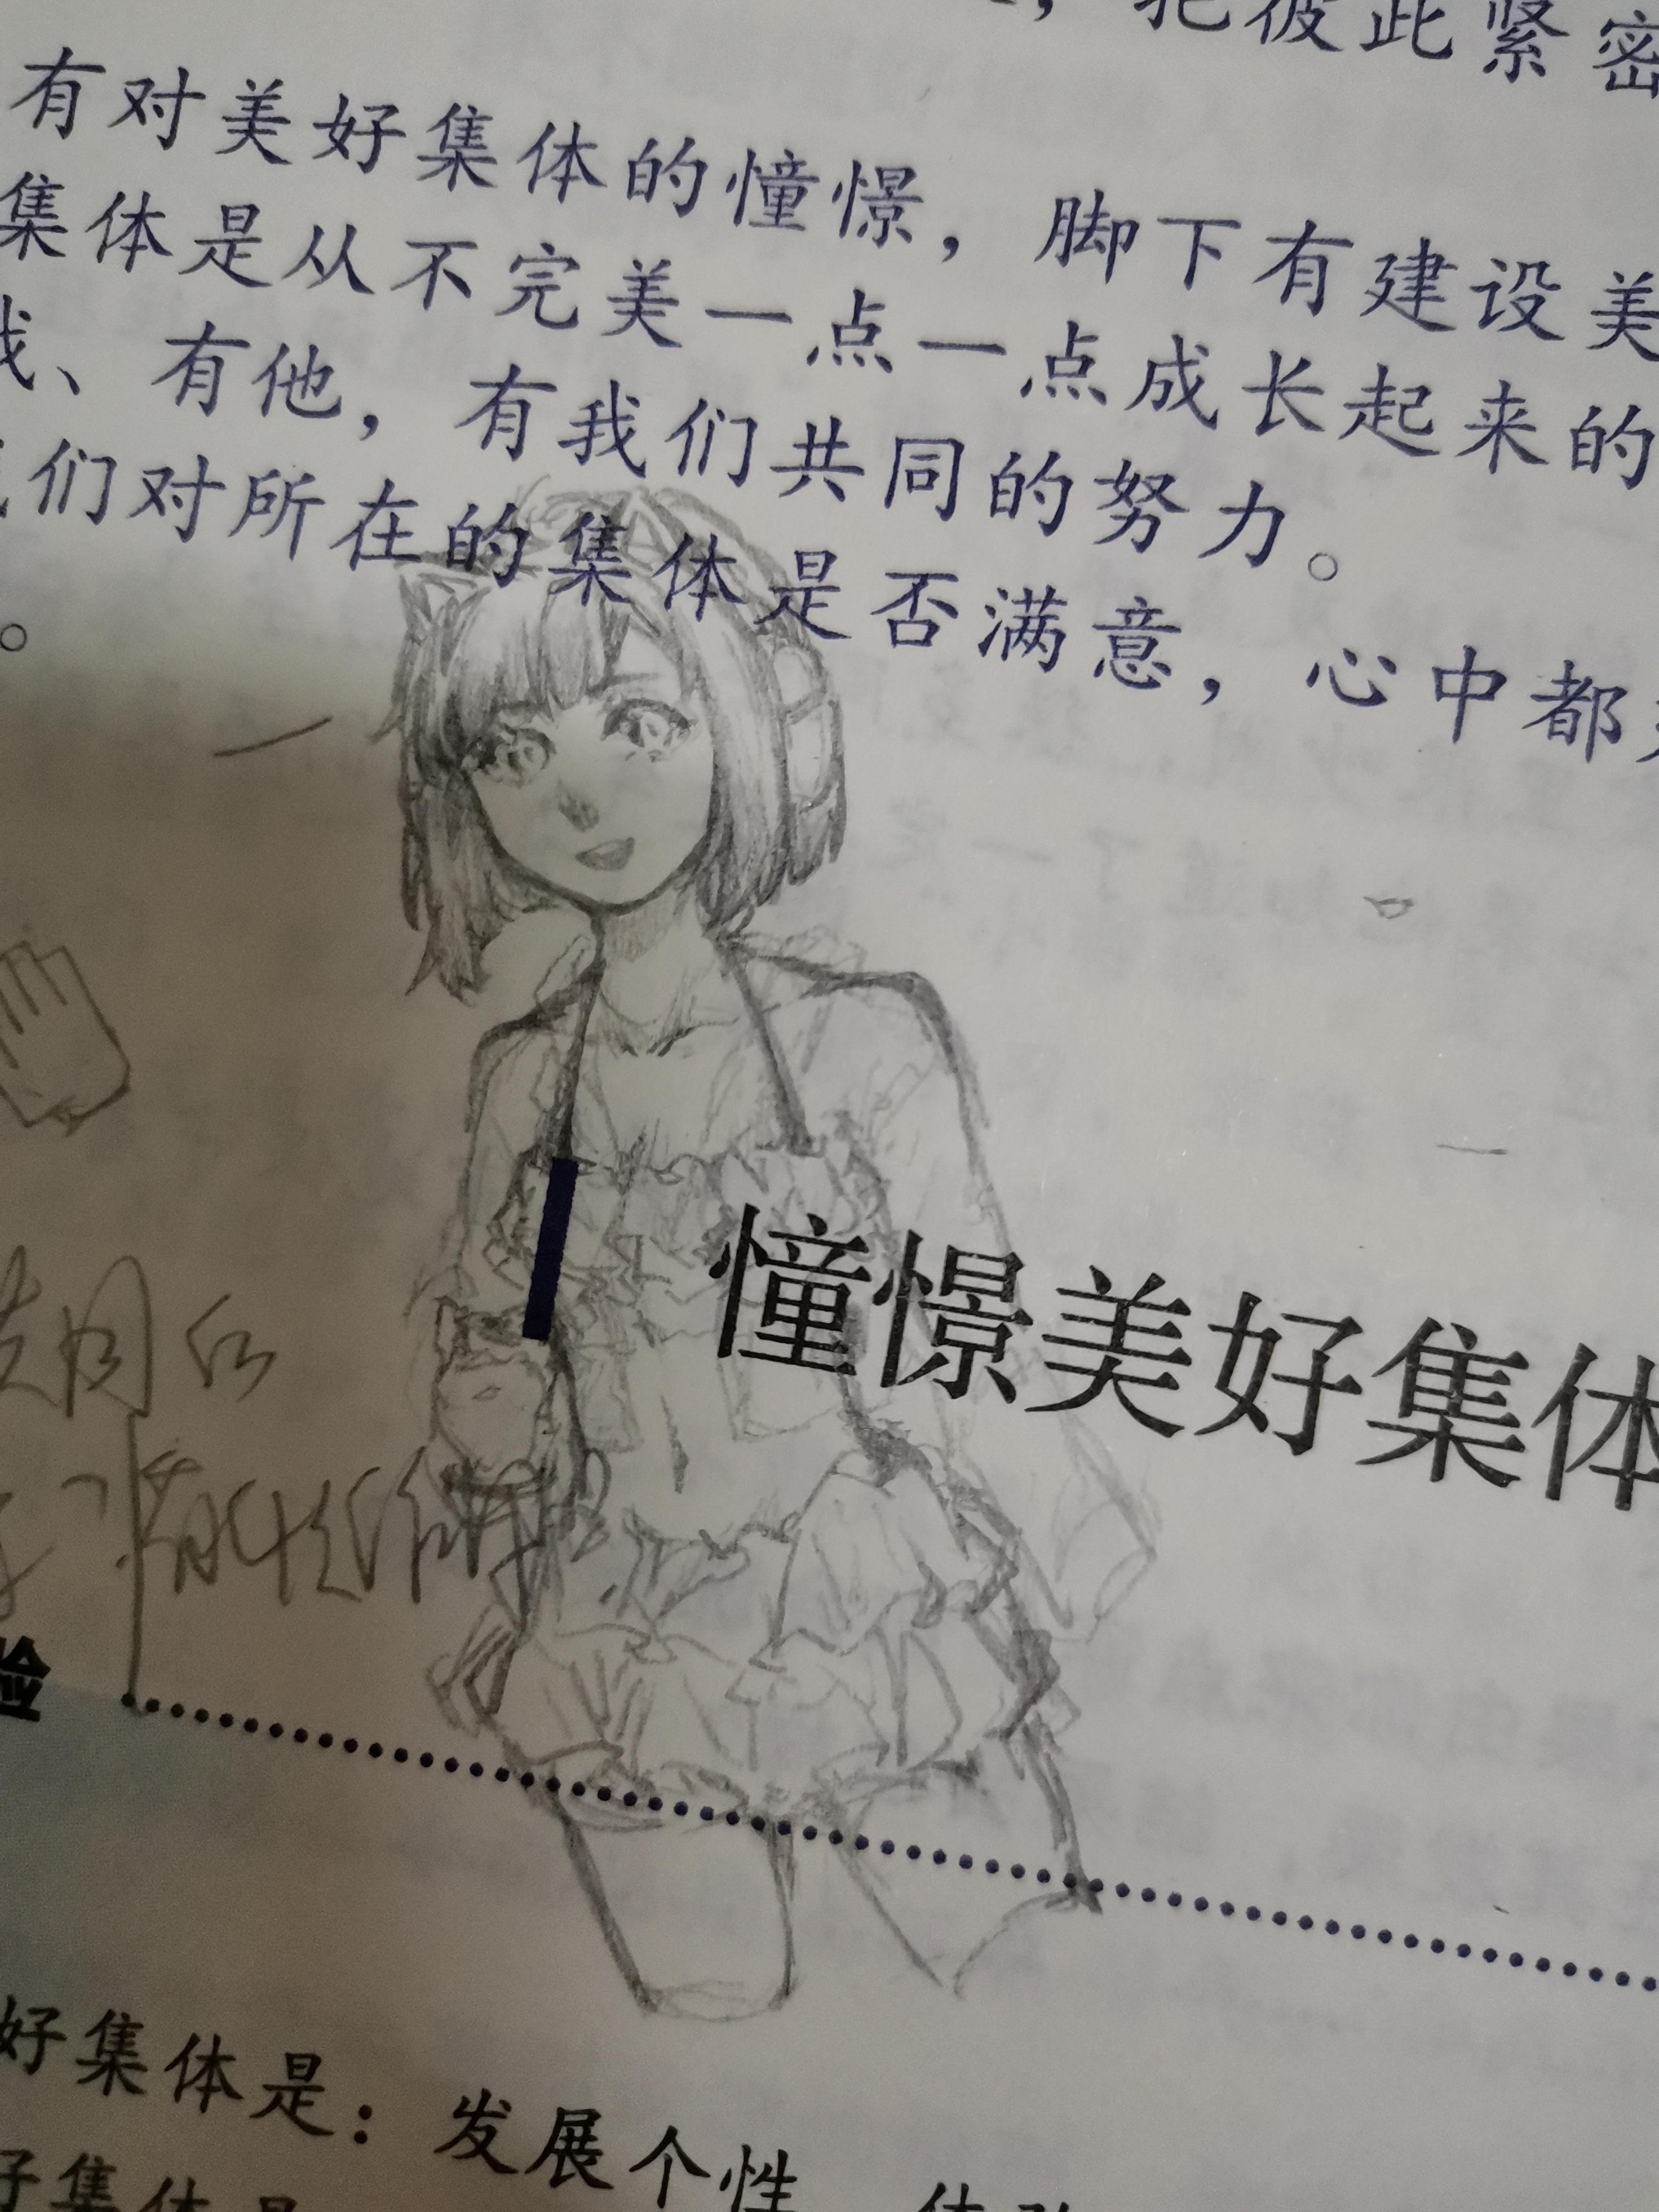 ，把彼此紧密
有对美好集体的憧憬，脚下有建设美
集体是从不完美一点一点成长起来的
我、有他，有我们共同的努力。
们对所在的集体是否满意，心中都
。
憧憬美好集体
共同的
验
好集体是：发展个性
好集体是